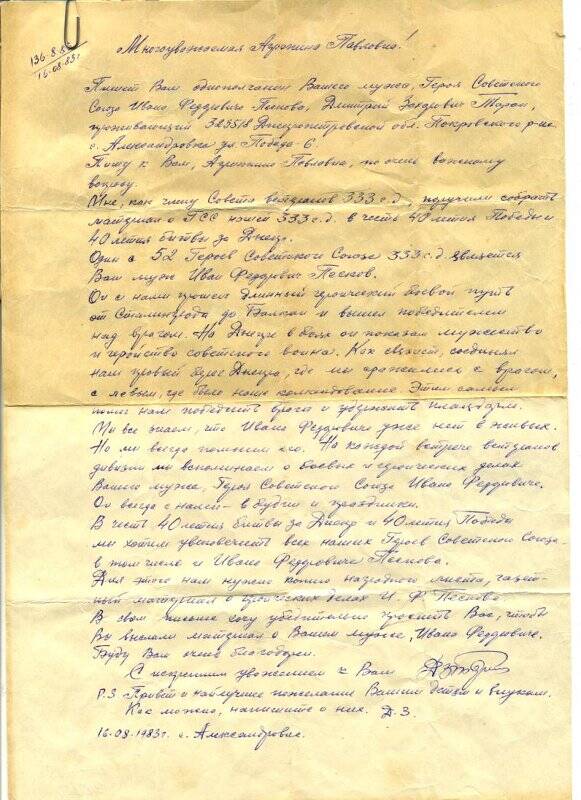 136-8.83
16.08.83г
Многоуважаемая Агропина Павловна!
Пишет Вам однополчанин Вашего мужа, Героя Советского
Союза Ивана Феддовича Пескова, Дмитрий Торан,
проживающий 323518 Днепропетровской обл. Покровского р-на
с. Александровка ул. Победа-6.
Пишу к Вам, Павловна, по очень важному
вопросу.
Мне, как члену Совета ветеранов 333 с.д., поручили собрать
материал о ГСС нашей 333 с.д. в честь 40 летия Победы и
40 летия битвы за Днепр.
Один с 52 Героев Советского Союза 333 с.д. является
Ваш муж Иван Феддович Песков.
Он с нами прошел длинный героический боевой путь
от Сталинграда до Балкан и вышел победителем
над врагом. На Днепре в боях он показал мужество
и геройство советского воина. Как связист, соединил
нам правый берег Днепра, где мы сражались с врагом,
с левым, где было наше командование. Этим самым
помог нам победить врага и удержать плацдарм.
Мы все знаем, что Ивана Феддовича уже нет в живых.
Но мы всегда помним его. На каждой встрече ветеранов
дивизии мы вспоминаем о боевых и героических делах
Вашего мужа, Героя Советского Союза Ивана Феддовича.
Он всегда с нами - в будни и праздники.
В честь 40 летия битвы за Днепр и 40 летия Победы
мы хотим увековечить всех наших Героев Советского Союза-
в том числе и Ивана Феддовича Пескова.
Для этого нам нужно копию наградного листа, газет-
ный материал о геройских делах И. Ф. Пескова.
В своем письме хочу убедительно просить Вас, чтобы
Вы выслали материал о Вашем муже, Иване Феддовиче.
Буду Вам очень благодарен.
С искренним уважением к Вам
P.S Привет и наилучшие пожелания Вашим детям и внукам.
Как можно, напишите о них. Д.З.
16.08.1983г. с. Александровка.